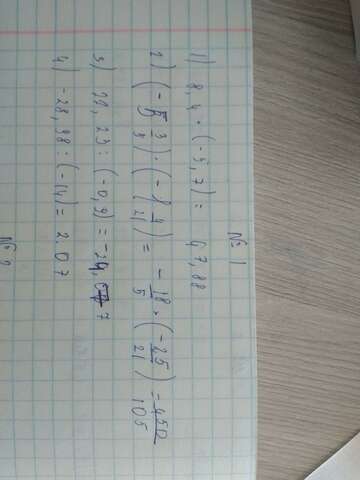 № 1
1) 8,4 · (-5,7) = 47,88
2) (- 3/5) · (-1 4/21) = -18/5 · (-25/21) = 450/105
3) 22,23 : (-0,9) = -24,7
4) -28,98 : (-14) = 2.07